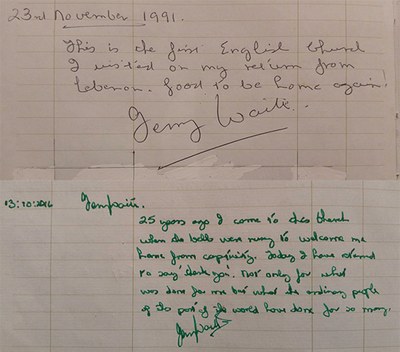 23rd November 1991.
This is the first English Church
I visited on my return from
Lebanon. Good to be home again!
Terry Waite.
13:10:2016
25 years ago I came to this church
when the bells were rung to welcome me
home from captivity. Today I have returned
to say 'thank you'. Not only for what
was done for me but what the ordinary people
of this part of the world have done for so many.